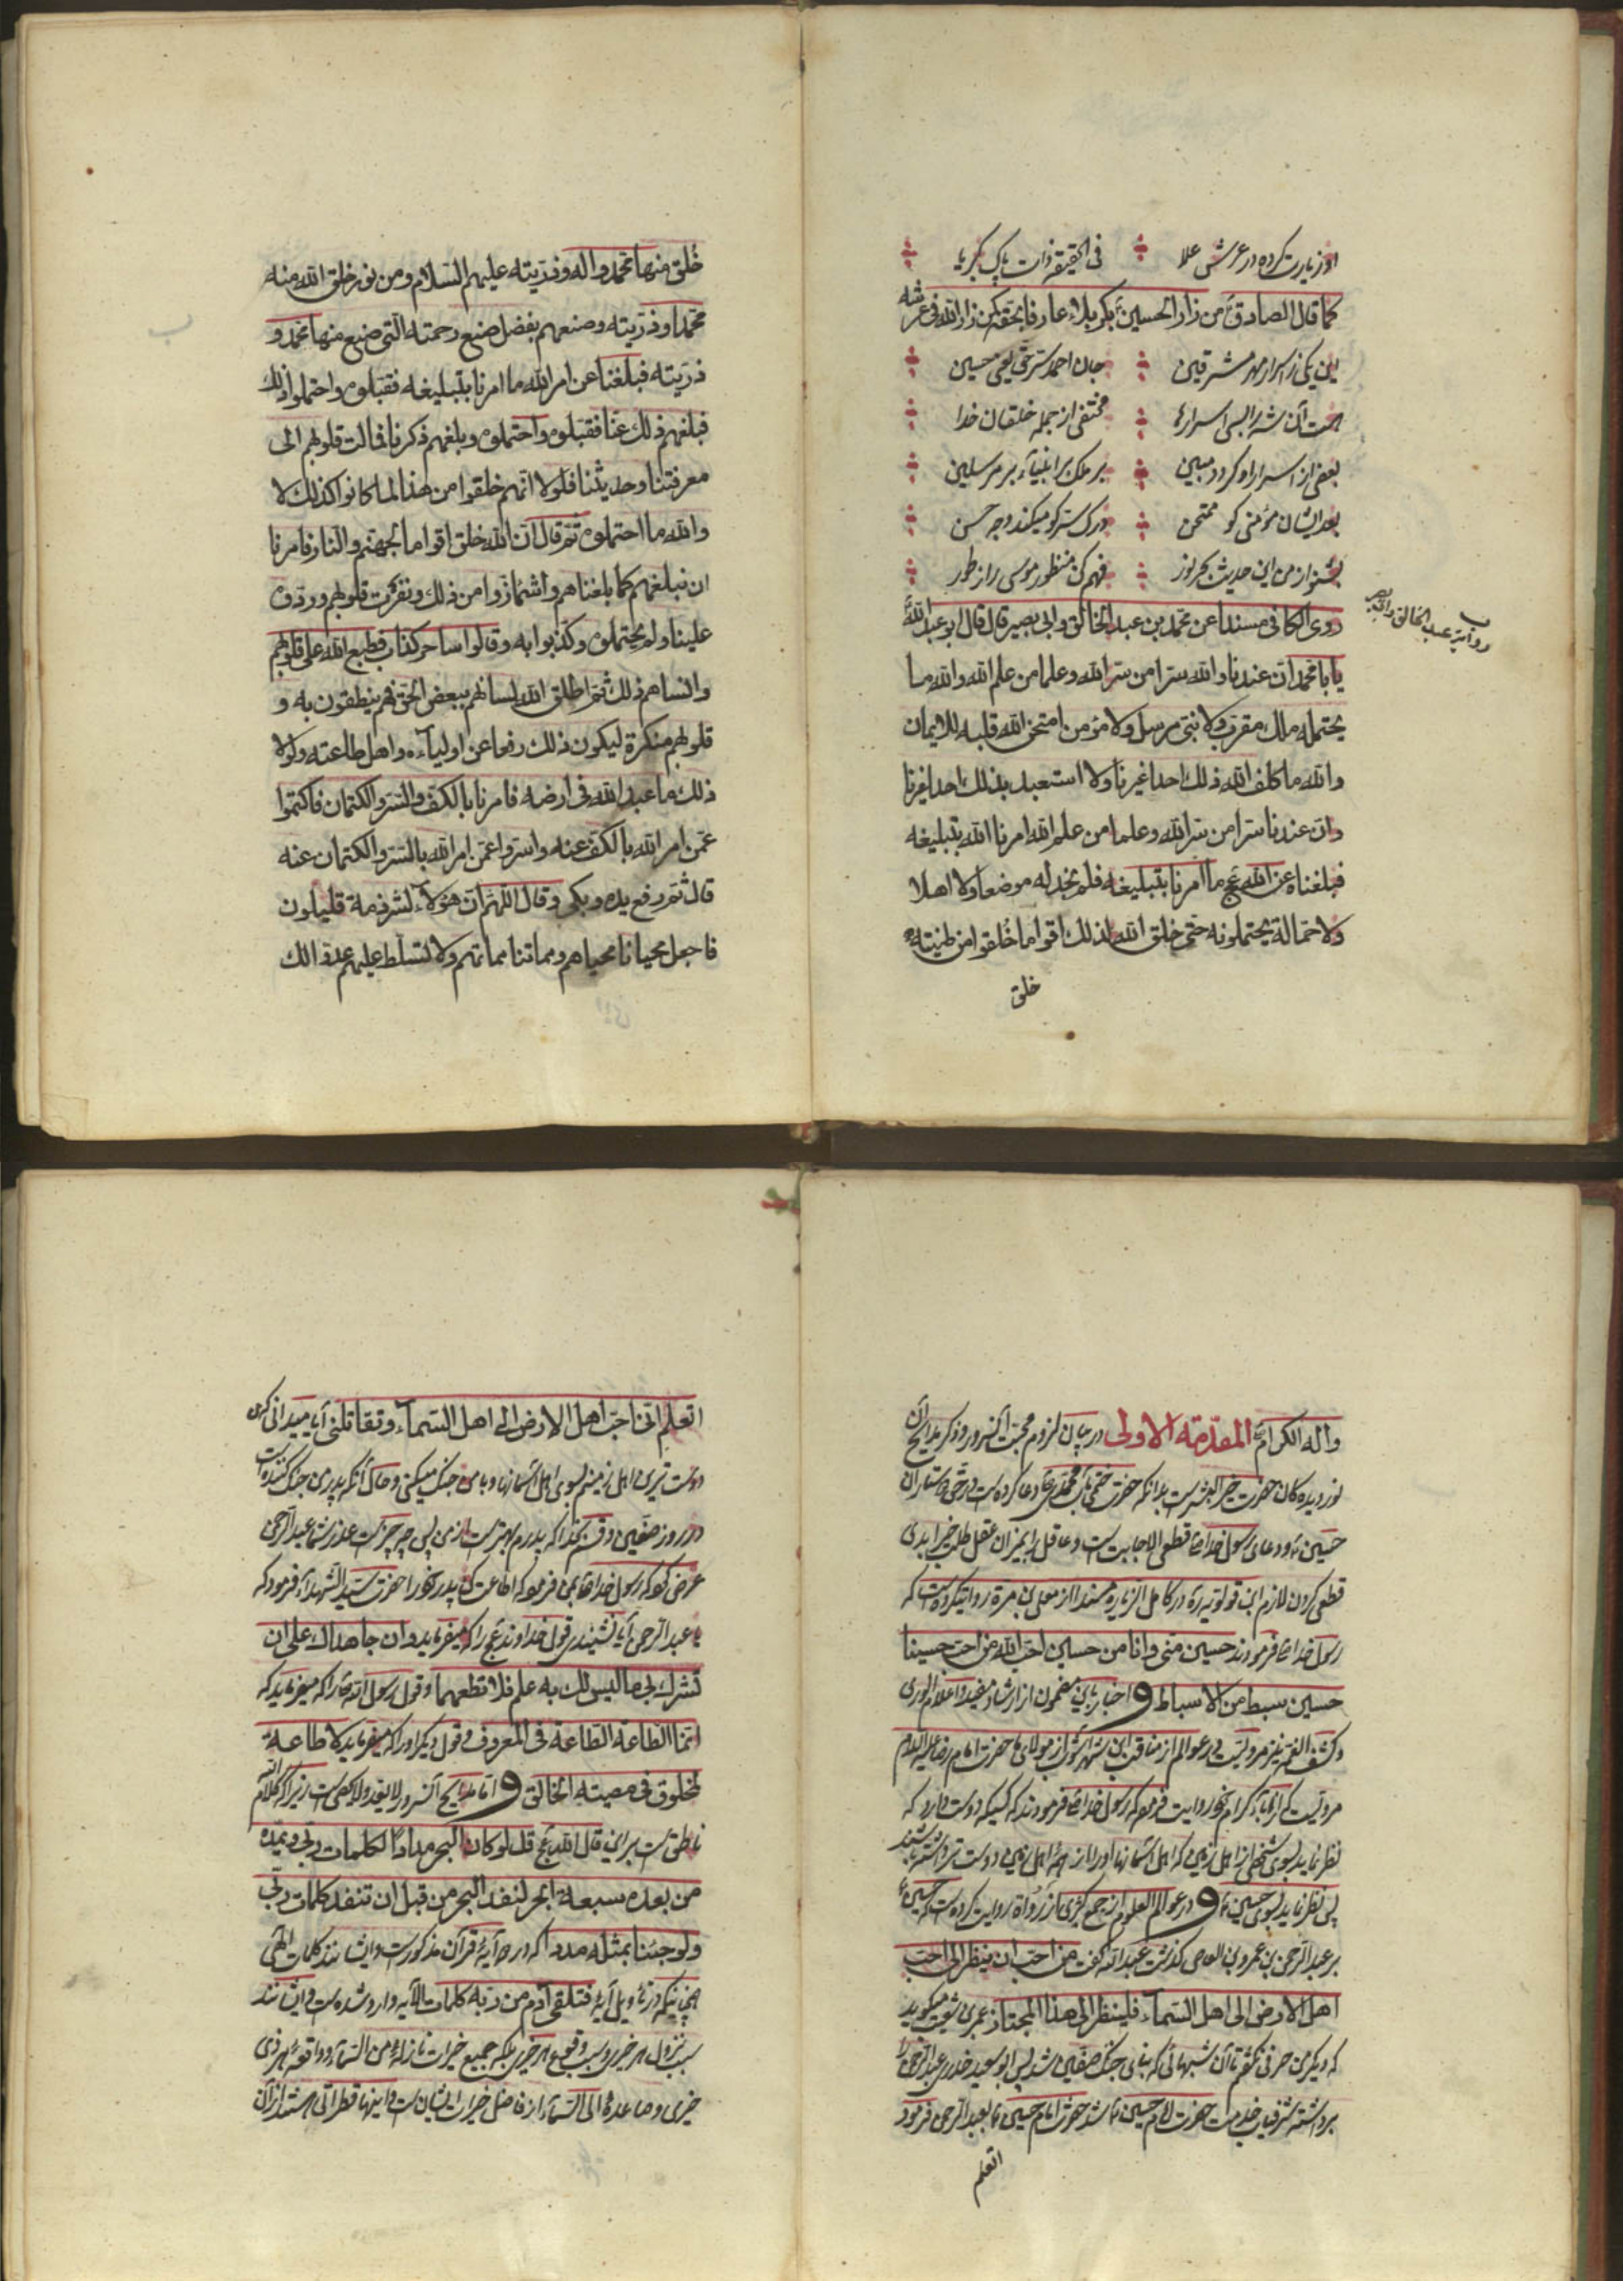 او زیارت کرده در عرش علا فی الحقیقه ذات پاک کبریا
کما قال الصادق ع من زار الحسین ع بکربلاء عارفا بحقه کمن زار الله فی عرشه
این یکی ز اسرار مهر مشرقین جان احمد سر حق یعنی حسین
هست آن شه را بسی اسرارها مختفی از جمله خلقان خدا
بعضی از اسرار او گردد مبین بر ملک بر انبیاء بر مرسلین
بعد ایشان مؤمنی کو ممتحن درک سر کو میکند وجه حسن
بشنو از من این حدیث بحر نور فهم کن منظور موسی را ز طور
روی الکافی مسندا عن محمد بن عبد الخالق وابی بصیر قال قال ابو عبد الله ع
روایة عبد الخالق وابی بصیر
یا با محمد ان عندنا والله سرا من سر الله وعلما من علم الله والله ما
یحتمله ملک مقرب ولا نبی مرسل ولا مؤمن امتحن الله قلبه للایمان
والله ما کلف الله ذلک احدا غیرنا ولا استعبد بذلک احدا غیرنا
وان عندنا سرا من سر الله وعلما من علم الله امرنا الله بتبلیغه
فبلغناه عن الله عج ما امرنا بتبلیغه فلم نجد له موضعا ولا اهلا
ولا حمالة یحتملونه حتی خلق الله لذلک اقواما خُلقوا من طینة
خلق
خُلق منها محمد وآله وذریته علیهم السلام ومن نور خلق الله منه
محمدا وذریته وصنعهم بفضل صنع رحمته التی صنع منها محمد و
ذریته فبلغنا عن امر الله ما امرنا بتبلیغه فقبلوه واحتملوا ذلک
فبلغهم ذلک عنا فقبلوه واحتملوه وبلغهم ذکرنا فمالت قلوبهم الی
معرفتنا وحدیثنا فلولا انهم خلقوا من هذا لما کانوا کذلک لا
والله ما احتملوه ثم قال ان الله خلق اقواما لجهنم والنار فامرنا
ان نبلغهم کما بلغناهم واشمأزوا من ذلک ونفرت قلوبهم وردوه
علینا ولم یحتملوه وکذبوا به وقالوا ساحر کذاب فطبع الله علی قلوبهم
وانساهم ذلک ثم اطلق الله لسانهم ببعض الحق فهم ینطقون به و
قلوبهم منکرة لیکون ذلک دفعا عن اولیآءه واهل طاعته ولولا
ذلک ما عبد الله فی ارضه فامرنا بالکف والستر والکتمان فاکتموا
عمن امر الله بالکف عنه واستروا عمن امر الله بالستر والکتمان عنه
قال ثم رفع یده وبکی وقال اللهم ان هؤلآء لشرذمة قلیلون
فاجعل محیانا محیاهم ومماتنا مماتهم ولا تسلط علیهم عدوا لک
وآله الکرام المقدمة الاولی در بیان لزوم محبت آنسرور وذکر مدایح آن
نور دیده کان حضرت خیر البشر است بدانکه حضرت ختمی مآب محمد ص دعا کرده است در حق دوستاران
حسین ع ودعای رسول خدا ص قطعی الاجابت است وعاقل را بمیزان عقل طلب خیر ابدی
قطعی کردن لازم ابن قولویه ره در کامل الزیاره مسندا از معلی بن مرة روایت کرده است که
رسول خدا ص فرمودند حسین منی وانا من حسین احب الله من احب حسینا
حسین سبط من الاسباط و اخبار باین مضمون از ارشاد مفید واعلام الوری
وکشف الغمه نیز مرویست ودر عوالم از مناقب ابن شهر آشوب از مولای ما حضرت امام رضا علیه السلام
مرویست که از آباء کرام خود روایت فرموده که رسول خدا ص فرمودند که کسیکه دوست دارد که
نظر نماید بسوی شخصی از اهل زمین که اهل آسمانها او را از همه اهل زمین دوست تر داشته باشند
پس نظر نماید بسوی حسین ع و در عوالم العلوم از جمع کثیری از رواة روایت کرده است که حسین ع
بر عبد الرحمن بن عمرو بن العاص گذشت عبد الله گفت من احب ان ینظر الی احب
اهل الارض الی اهل السمآء فلینظر الی هذا المجتاز عمری میگوید
که دیگر من حرفی نگفتم تا آن شبهائی که بنای جنگ صفین شد پس ابو سعید خدری عبد الرحمن را
برداشته شرفیاب خدمت حضرت امام حسین ع شد حضرت امام حسین ع بعبد الرحمن فرمود
اتعلم
اتعلم انی احب اهل الارض الی اهل السمآء وتقاتلنی آیا میدانی که من
دوست ترین اهل زمینم بسوی اهل آسمانها وبا من جنگ میکنی وحال آنکه پدر من جنگ کننده است
در روز صفین وقسم بخدا که پدرم بهتر است از من پس چه چیز است عذر شما عبد الرحمن
عرض کرد که رسول خدا ص بمن فرموده که اطاعت کن پدر خود را حضرت سید الشهداء فرمود که
یا عبد الرحمن آیا نشنیدی قول خداوند عج را که میفرماید وان جاهداک علی ان
تشرک بی ما لیس لک به علم فلا تطعهما وقول رسول الله ص را که میفرماید که
انما الطاعة الطاعة فی المعروف وقول دیگر او را که میفرماید لا طاعة
لمخلوق فی معصیته الخالق و اما مدایح آنسرور لا یعد ولا یحصی است زیرا که کلام الله
ناطق است براین قال الله عج قل لو کان البحر مدادا لکلمات ربی ویمده
من بعده سبعة ابحر لنفد البحر من قبل ان تنفد کلمات ربی
ولو جئنا بمثله مددا که در دو آیهٔ قرآن مذکور است وایشانند کلمات الهی
چنانکه در تأویل آیهٔ فتلقی آدم من ربه کلمات الآیه وارد شده است وایشانند
سبب نزول هر خیری وسبب وقوع هر خیری بلکه جمیع خیرات نازله من السمآء وواقعه بهر ذی
خیری وصاعدة الی السمآء از فاضل خیرات ایشان است واینها قطراتی هستند از آن